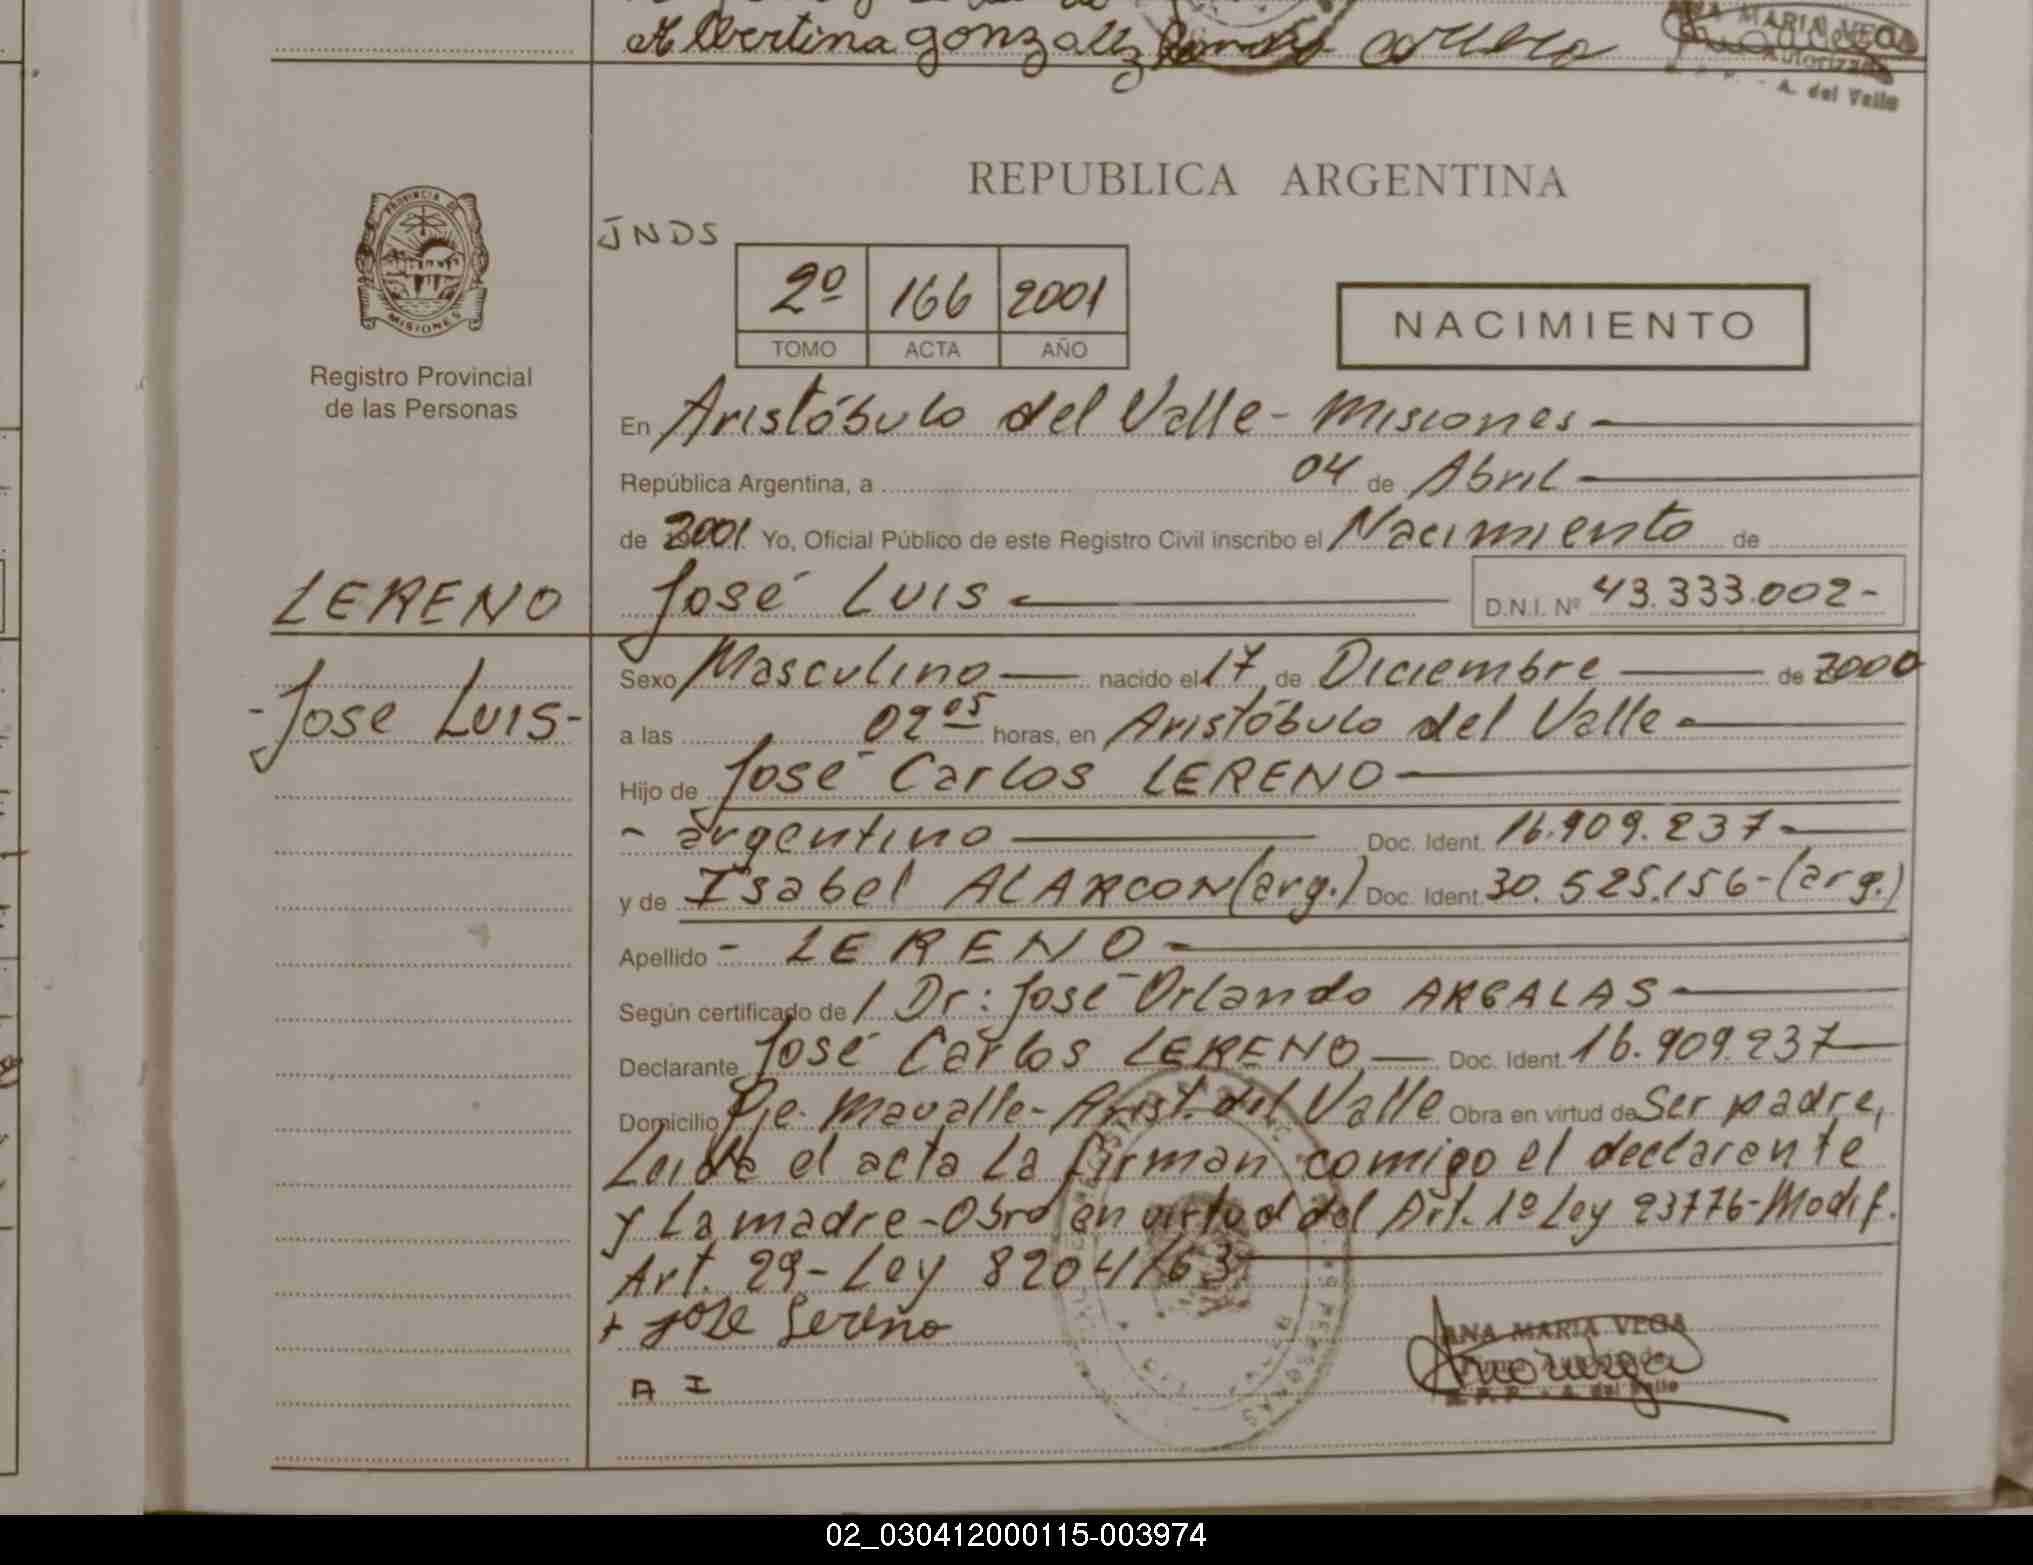 Albertina gonzalez
ANA MARIA VEGA
Autorizada
A. del Valle
REPUBLICA ARGENTINA
PROVINCIA DE
MISIONES
JNDS
2º 166 2001
TOMO ACTA AÑO
NACIMIENTO
Registro Provincial
de las Personas
En Aristóbulo del Valle - Misiones
República Argentina, a 04 de Abril
de 2001 Yo, Oficial Público de este Registro Civil inscribo el Nacimiento de
LERENO
José Luis D.N.I. Nº 43.333.002-
- Jose Luis -
Sexo Masculino nacido el 17 de Diciembre de 2000
a las 02 05 horas, en Aristóbulo del Valle
Hijo de José Carlos LERENO
- argentino Doc. Ident. 16.909.237
y de Isabel ALARCON (arg.) Doc. Ident. 30.525.156 - (arg.)
Apellido - LERENO
Según certificado de Dr: José Orlando
Declarante José Carlos LERENO Doc. Ident. 16.909.237
Domicilio Pje. Mavalle - Arist. del Valle Obra en virtud de Ser padre,
Leida el acta la firman comigo el declarante
y la madre - Obro en virtud del Art. 1º Ley 23776 - Modif.
Art. 29 - Ley 8204/63
+ Jose Lereno
A I
ANA MARIA VEGA
A. del Valle
02_030412000115-003974